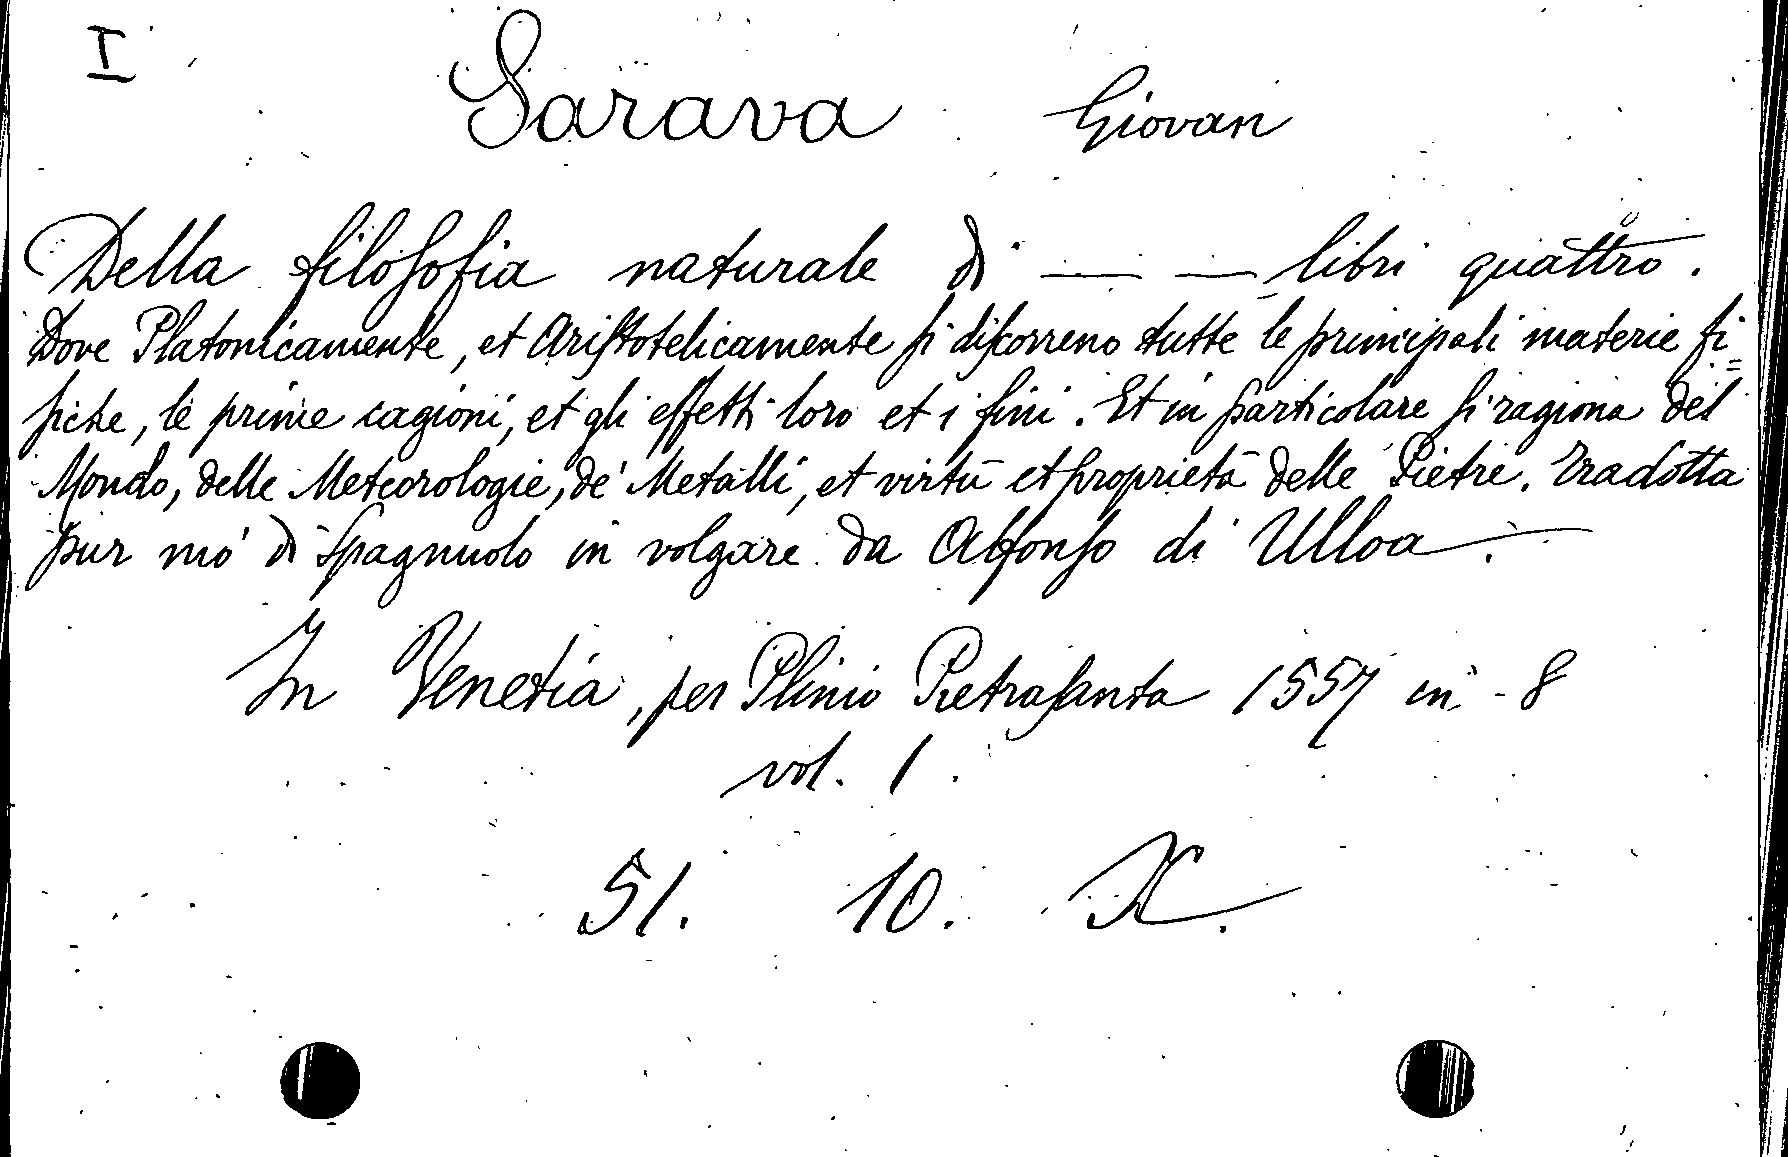 I
Sarava Giovan
Della filoſofia naturale di — — libri quattro.
Dove Platonicamente, et Ariſtotelicamente ſi diſcorreno tutte le principali materie fi=
ſiche, le prime cagioni, et gli effetti loro et i fini. Et in particolare ſi ragiona del
Mondo, delle Meteorologie, de' Metalli, et virtù et proprietà delle Pietre. Tradotta
pur mo' di Spagnuolo in volgare da Alfonſo di Ulloa.
In Venetia, per Plinio Pietraſanta 1557 in-8
vol. 1.
51. 10. X.